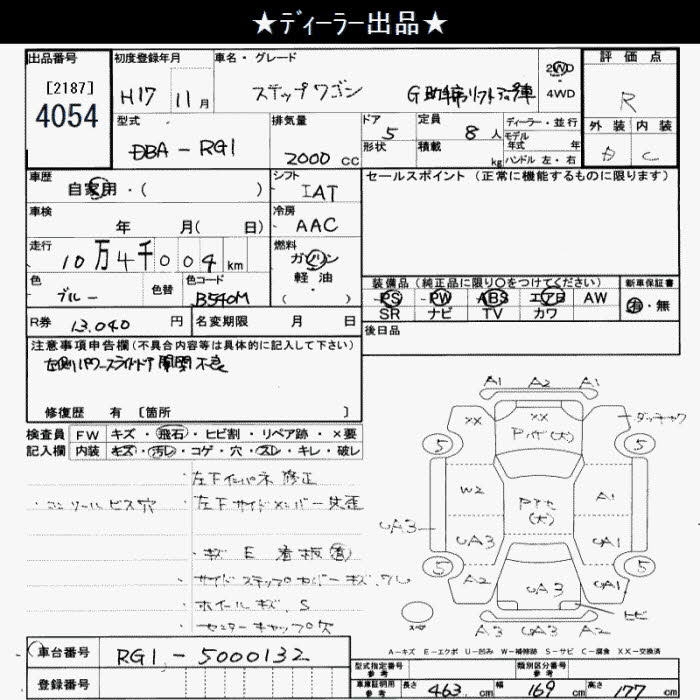 ★ディーラー出品★
出品番号
[2187]
4054
初度登録年月
H17 11月
車名・グレード
ステップワゴン
2WD
4WD
評価点
R
外装 内装
C
型式
DBA-RG1
排気量
2000 cc
ドア
5
形状
定員
8 人
積載
kg
ディーラー・並行
モデル
年式 年
ハンドル 左・右
車歴
自家用・( )
シフト
IAT
セールスポイント (正常に機能するものに限ります)
車検
年 月( 日)
冷房
AAC
走行
10万4千004 km
燃料
ガソリン
軽油
( )
色
ブルー
色替
色コード
B540M
装備品 (純正品に限り○をつけてください)
PS PW ABS エアB AW
SR ナビ TV カワ
新車保証書
有・無
R券 13.040 円
名変期限 月 日
後日品
注意事項申告欄(不具合内容等は具体的に記入して下さい)
左側パワースライドドア 開閉不良
修復歴 有 [箇所 ]
検査員
記入欄
FW キズ・飛石・ヒビ割・リペア跡・×要
内装 キズ・汚レ・コゲ・穴・スレ・キレ・破レ
・左下インパネ 修正
・コンソールビス穴
・左下サイドメンバー
・キズ E 看板
・サイドステップカバー キズ、ワレ
・ホイールキズ、S
・センターキャップ欠
A1 A2 A1
××
5 5
W2
A1
UA3
UA3
UA1
5 5
A2
UA3
UA1
ヒビ
A3 UA3 A2
スペア
A−キズ E−エクボ U−凹み W−補修跡 S−サビ C−腐食 XX−交換済
車台番号
RG1-5000132
登録番号
型式指定番号
参考
類別区分番号
参考
車庫証明用
参考
長さ 463 cm
幅 169 cm
高さ 177 cm